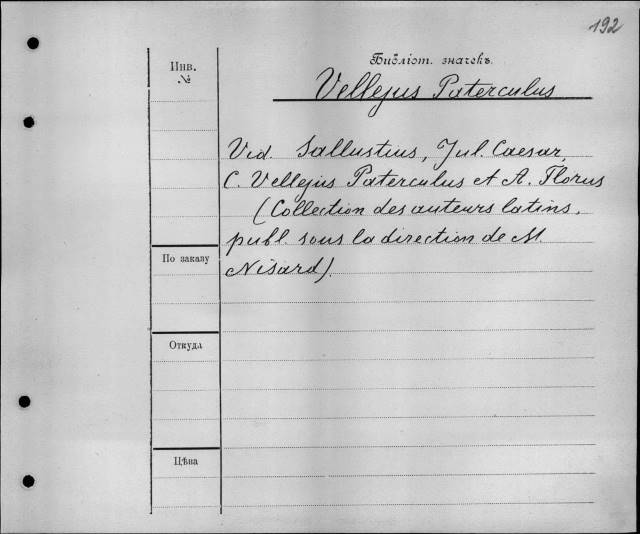 192
Библіот. значекъ.
Инв.
№
Vellejus Paterculus
Vid. Sallustius, Jul. Caesar,
C. Vellejus Paterculus et A. Florus
(Collection des auteurs latins,
publ. sous la direction de M.
Nisard).
По заказу
Откуда
Цѣна